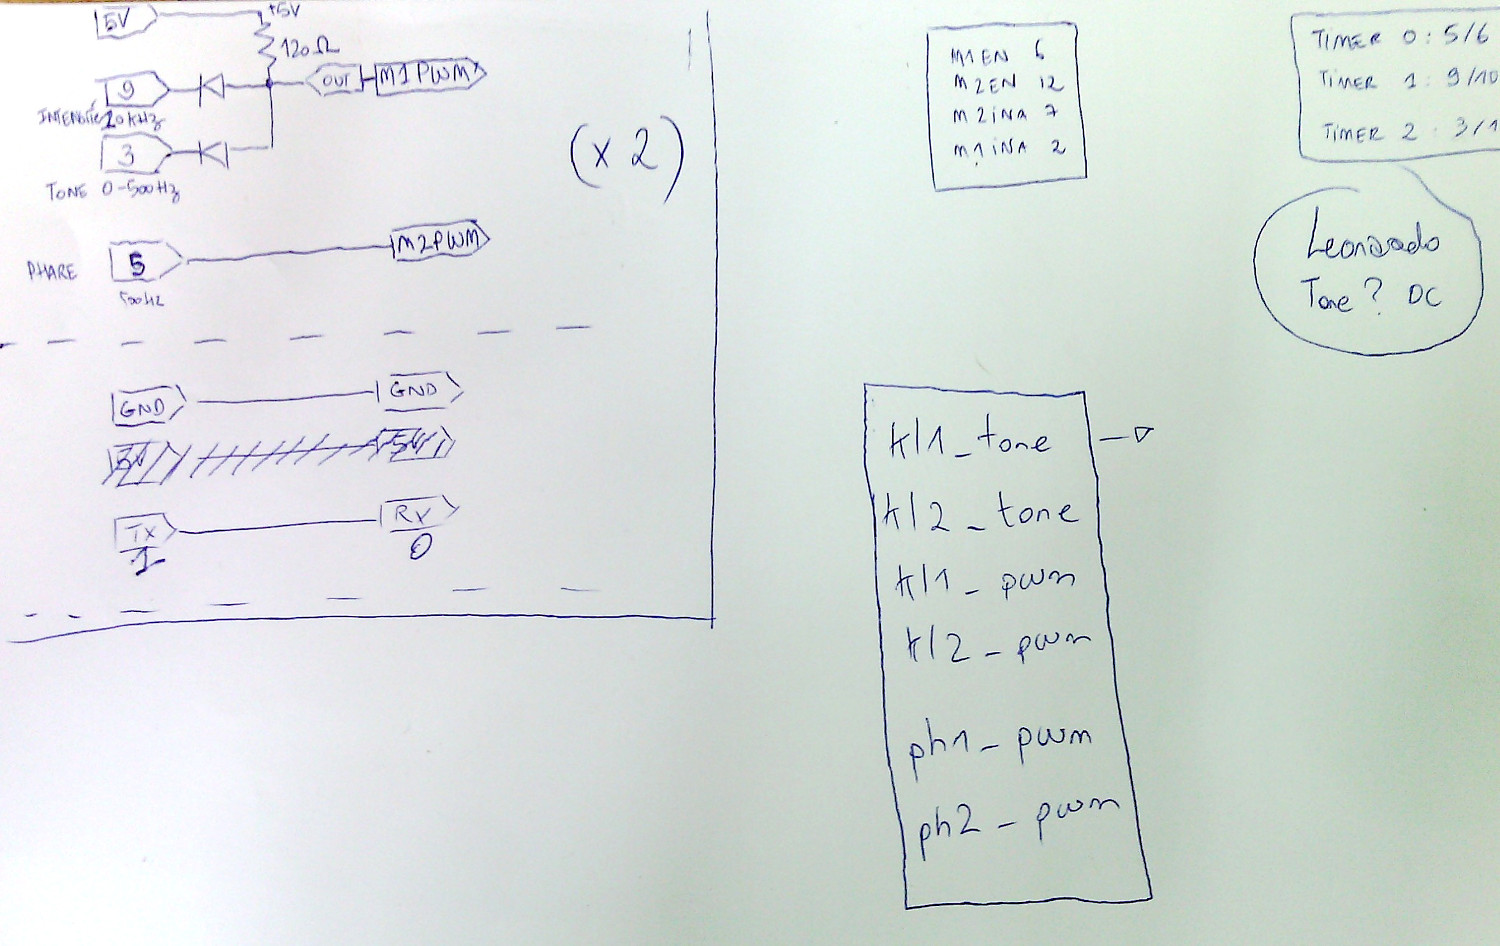 5V +5V
120Ω
9 OUT M1PWM
INTENSITÉ 20kHz
3
TONE 0-500Hz
(x 2)
5 M2PWM
PHARE
500Hz
GND GND
5V 5V
Tx RX
1 0
M1EN 6
M2EN 12
M2iNA 7
M1iNA 2
TIMER 0: 5/6
TIMER 1: 9/10
TIMER 2: 3/1
Leonardo
Tone? DC
kl1_tone
kl2_tone
kl1_pwm
kl2_pwm
ph1_pwm
ph2_pwm